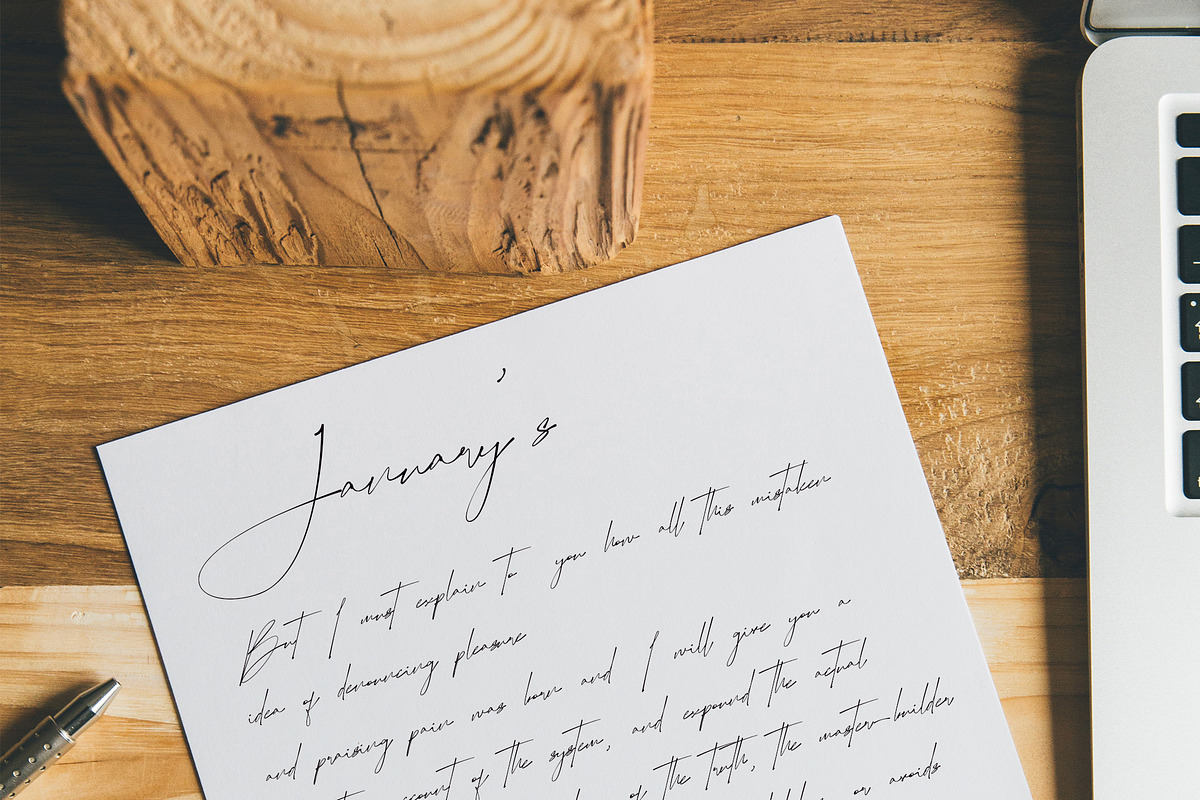 January's
But I must explain to you how all this mistaken
idea of denouncing pleasure
and praising pain was born and I will give you a
of the system, and expound the actual
of the truth, the master-builder
or avoids